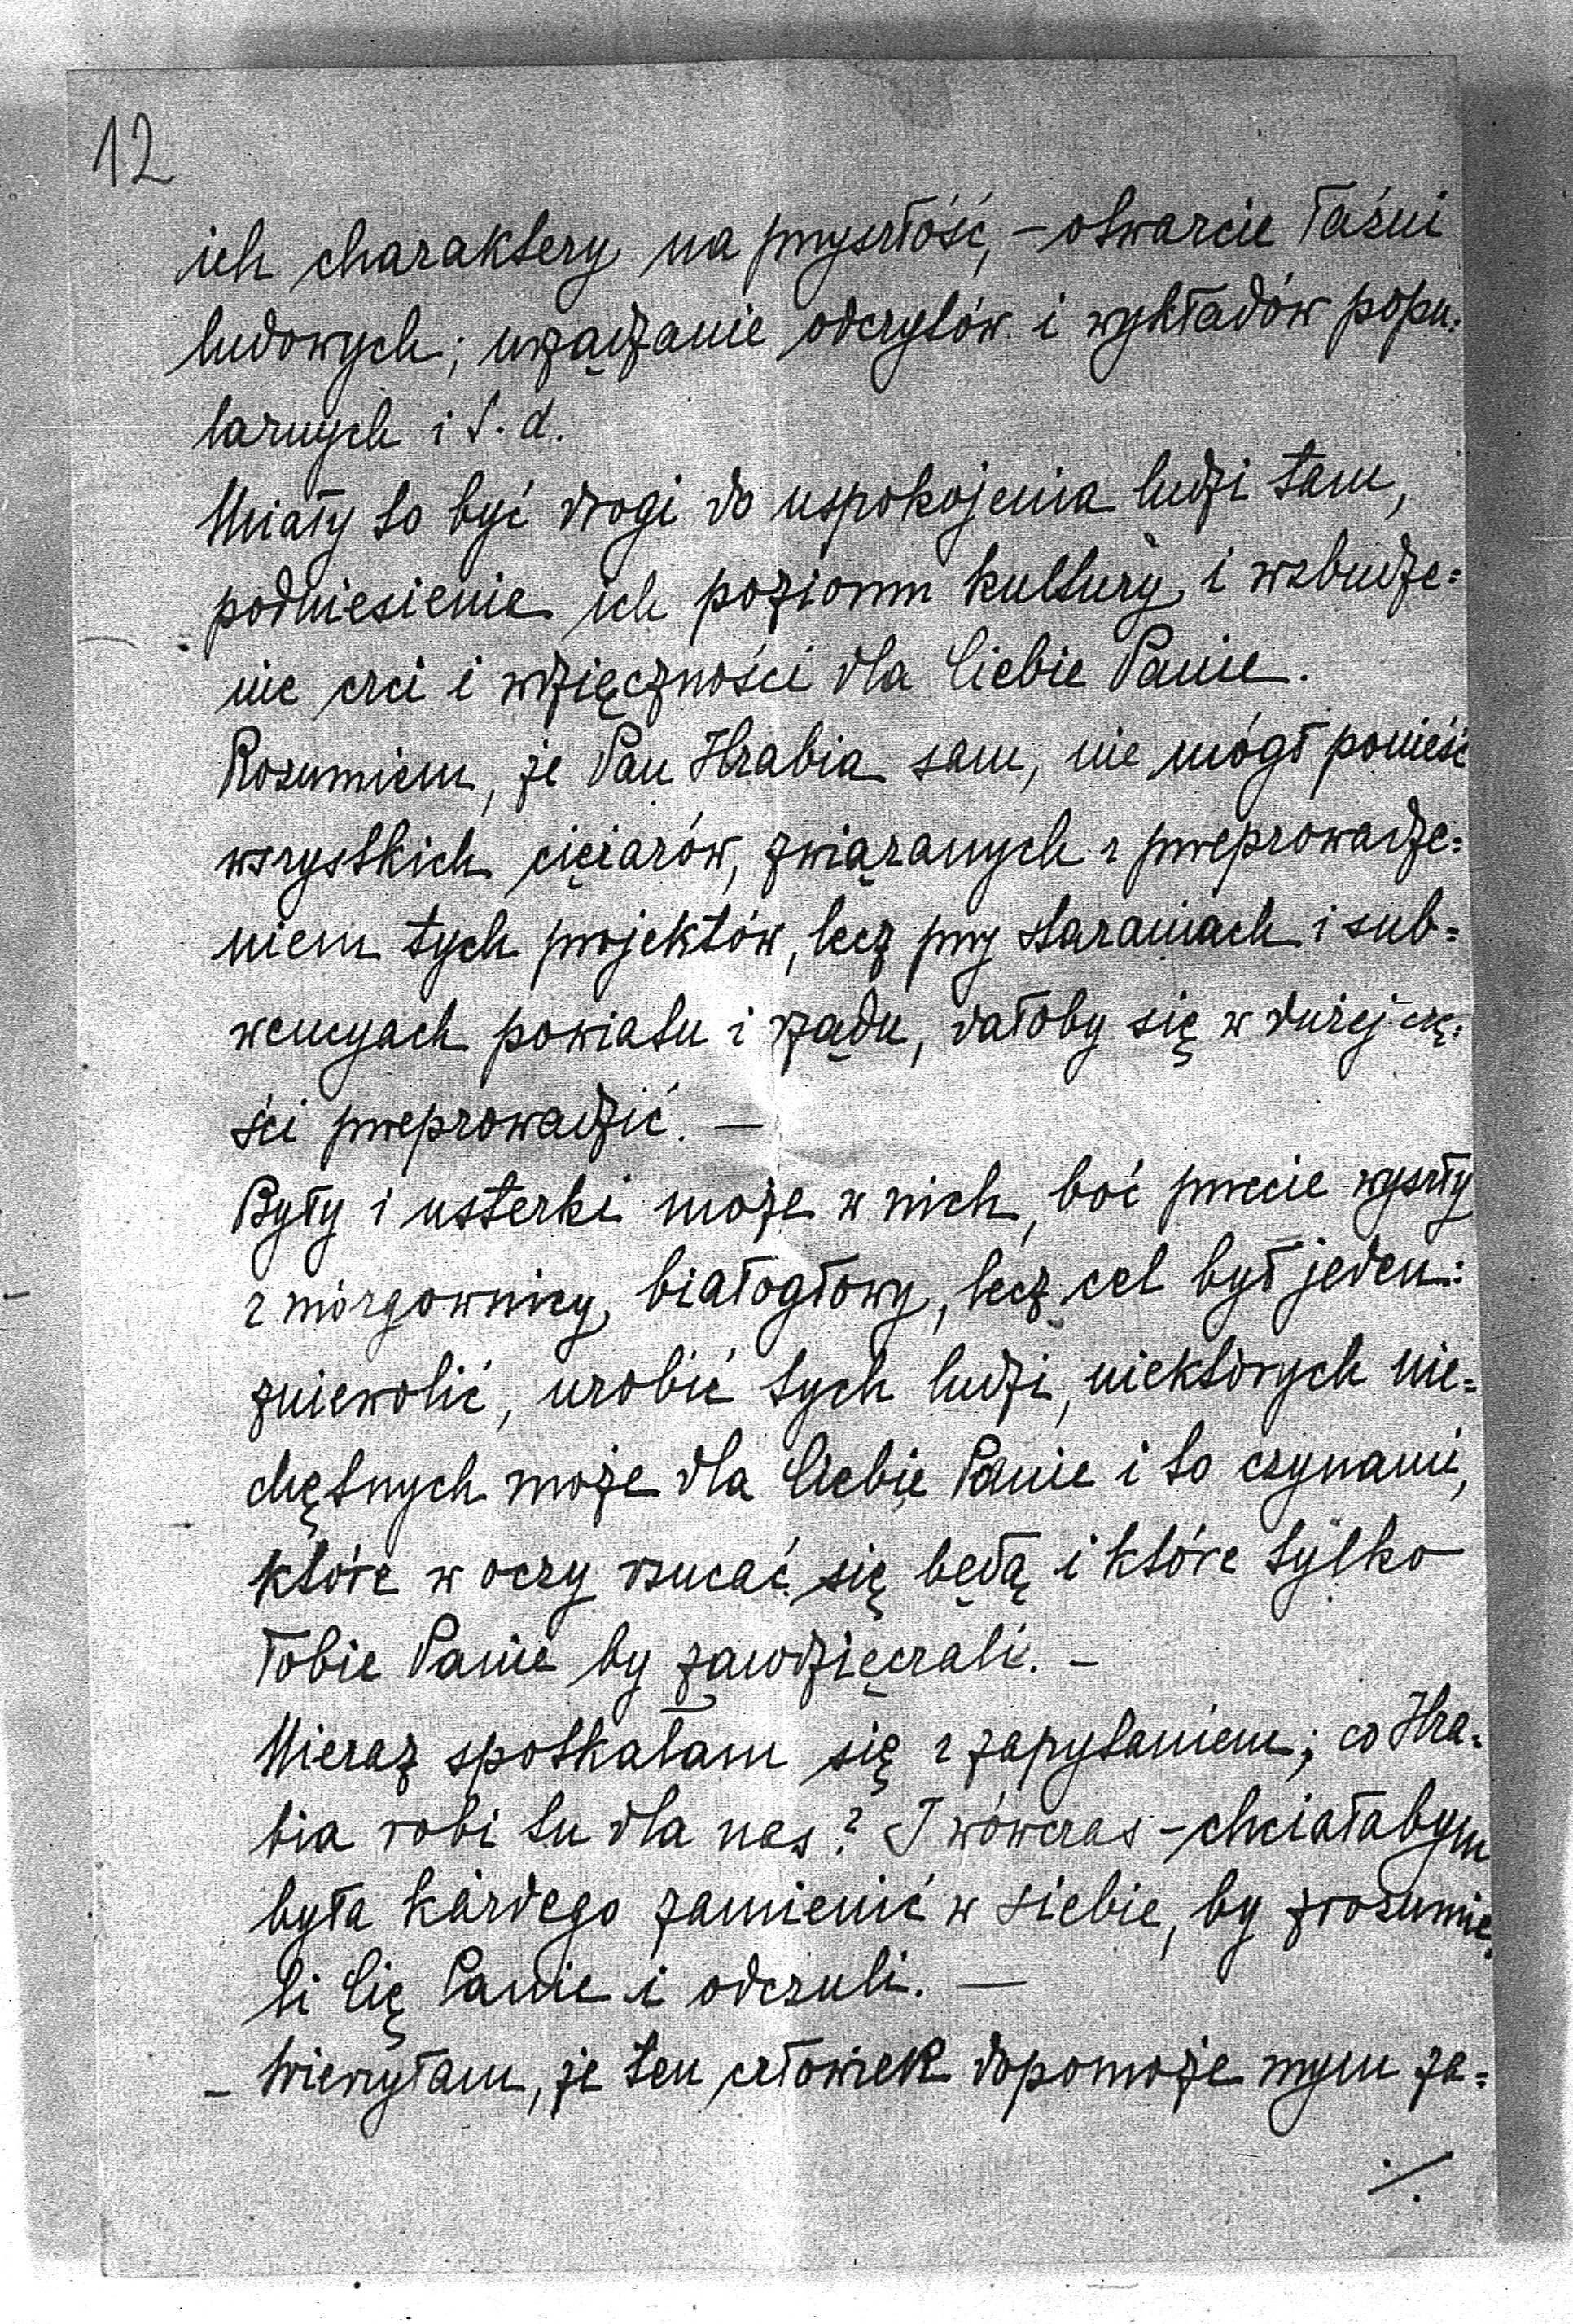 12
ich charaktery na przyszłość, – otwarcie łaźni
ludowych; urządzanie odczytów i wykładów popu=
larnych i t. d.
Miały to być drogi do uspokojenia ludzi tam,
podniesienie ich poziomu kultury i wzbudze=
nie czci i wdzięczności dla Ciebie Panie.
Rozumiem, że Pan Hrabia sam, nie mógł ponieść
wszystkich ciężarów, związanych z przeprowadze=
niem tych projektów, lecz przy staraniach i sub=
wencyach powiatu i rządu, dałoby się w dużej czę=
ści przeprowadzić. —
Były i usterki może w nich, boć przecie wyszły
z mózgownicy białogłowy, lecz cel był jeden:
zniewolić, urobić tych ludzi, niektórych nie=
chętnych może dla Ciebie Panie i to czynami,
które w oczy rzucać się będą i które tylko
Tobie Panie by zawdzięczali. –
Nieraz spotkałam się z zapytaniem; co Hra=
bia robi tu dla nas? I wówczas – chciałabym
była każdego zamienić w siebie, by zrozumie=
li Cię Panie i odczuli. —
– Wierzyłam, że ten człowiek dopomoże mym za=
./.